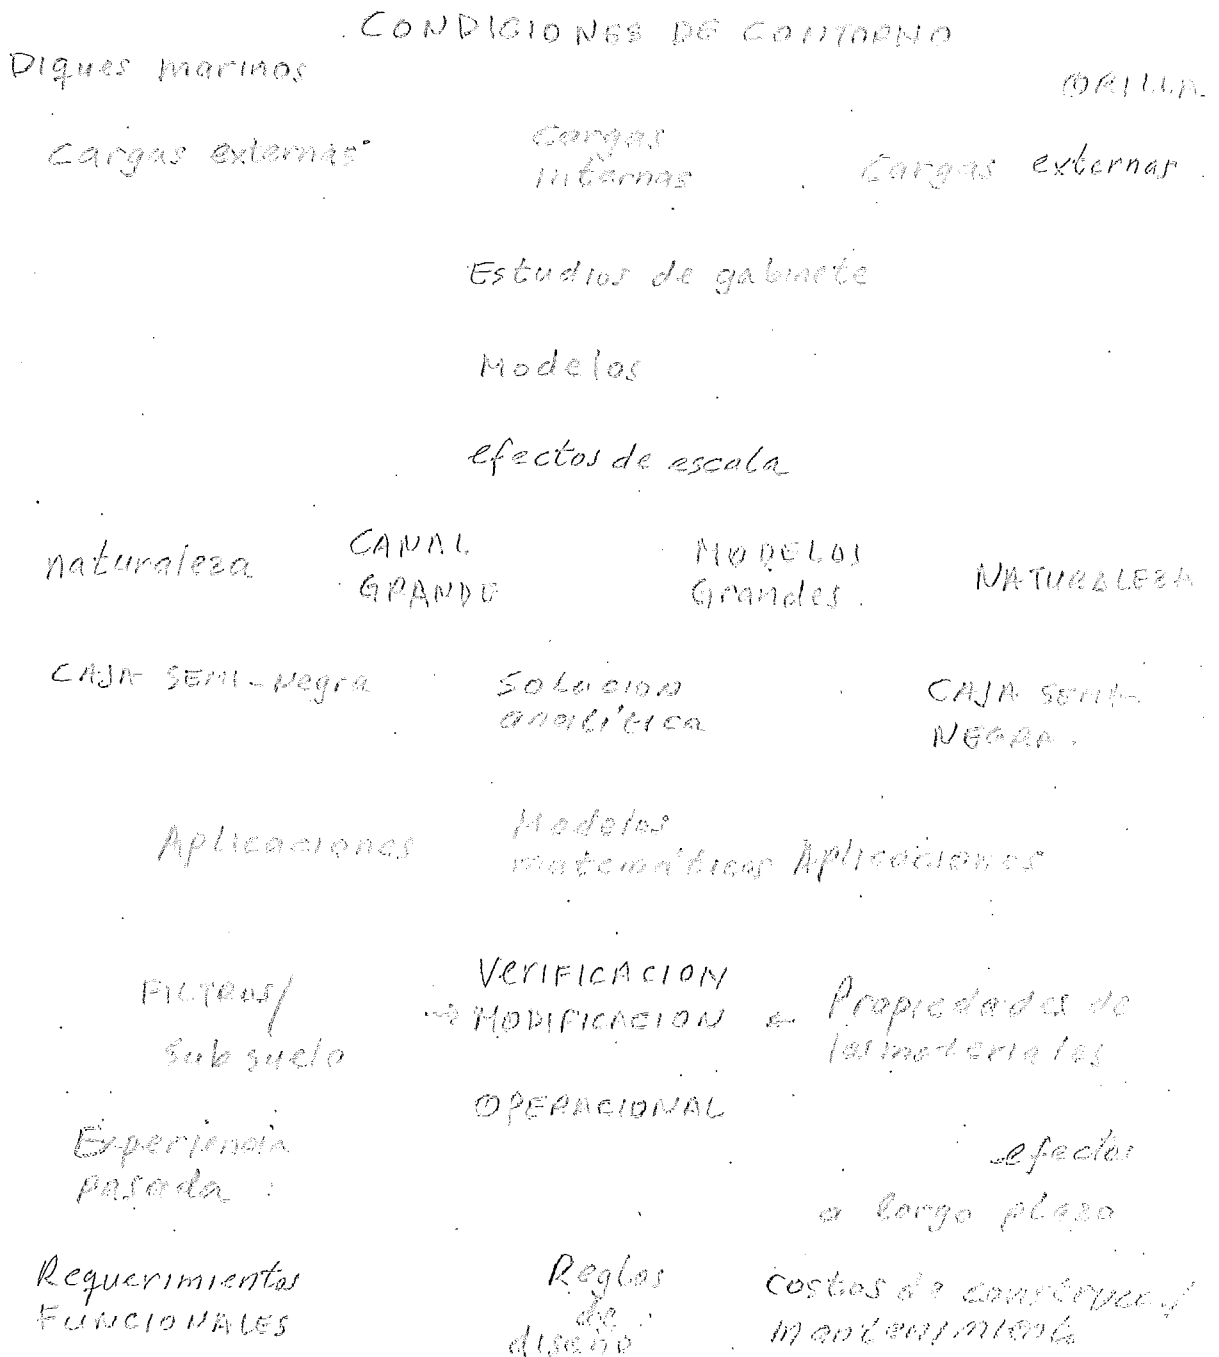 CONDICIONES DE CONTORNO
Diques marinos
ORILLA
Cargas externas
Cargas
internas
Cargas externas
Estudios de gabinete
Modelos
efectos de escala
naturaleza
CANAL
GRANDE
MODELOS
Grandes.
NATURALEZA
CAJA SEMI-Negra
SOLUCION
analítica
CAJA SEMI-
NEGRA.
Aplicaciones
Modelos
matemáticos
Aplicaciones
FILTROS/
Subsuelo
VERIFICACION
→ MODIFICACION ←
Propiedades de
los materiales
OPERACIONAL
Experiencia
pasada :
efectos
a largo plazo
Requerimientos
FUNCIONALES
Reglas
de
diseño
costos de construcc./
mantenimiento